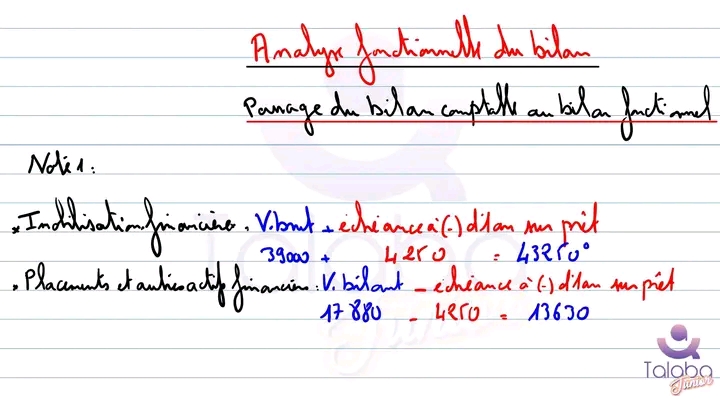 Analyse fonctionnelle du bilan
Passage du bilan comptable au bilan fonctionnel
Note 1:
* Immobilisation financière. V.brut + échéance à (-) d'1 an sur prêt
39000 + 4250 = 43250
• Placements et autres actifs financiers: V. bilant - échéance à (-) d'1an sur prêt
17880 - 4250 = 13630
Taloba
Junior